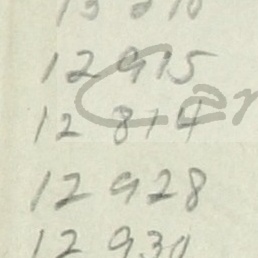 12 915
12 814
12 928
12 930